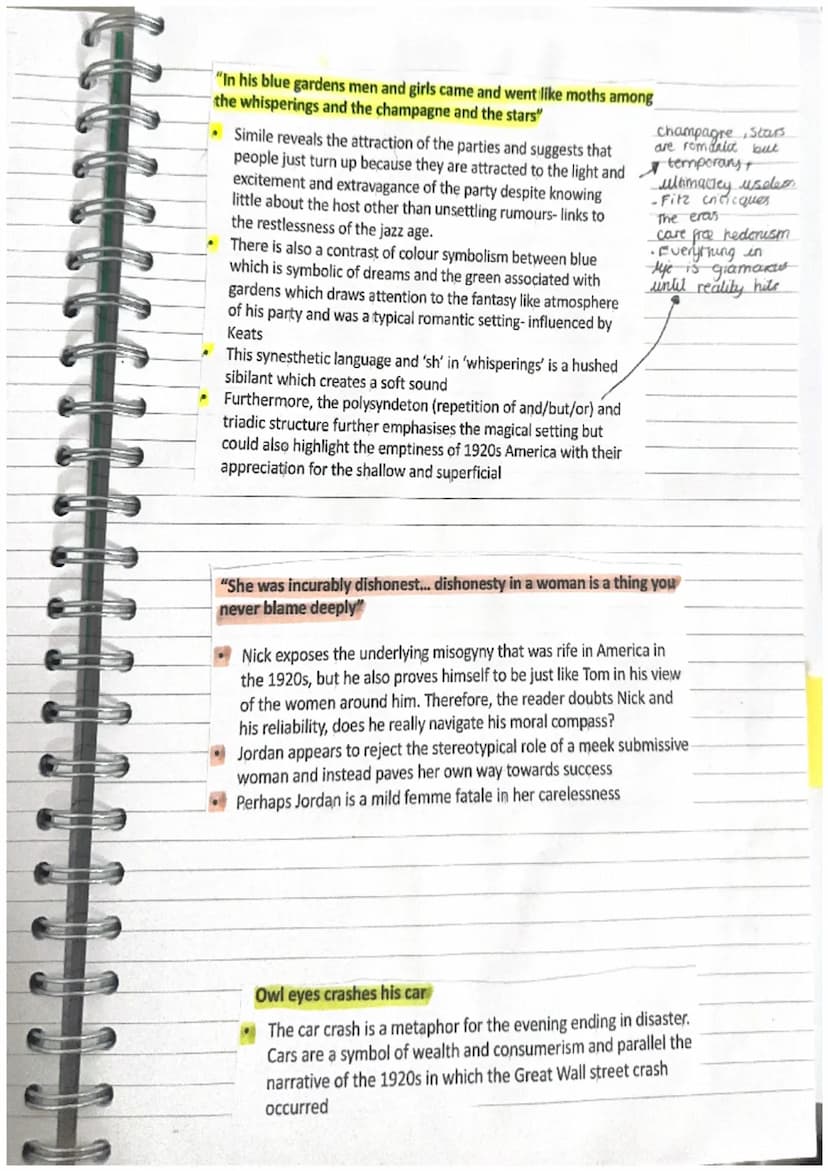 “In his blue gardens men and girls came and went like moths among
the whisperings and the champagne and the stars”
• Simile reveals the attraction of the parties and suggests that
people just turn up because they are attracted to the light and
excitement and extravagance of the party despite knowing
little about the host other than unsettling rumours- links to
the restlessness of the jazz age.
• There is also a contrast of colour symbolism between blue
which is symbolic of dreams and the green associated with
gardens which draws attention to the fantasy like atmosphere
of his party and was a typical romantic setting- influenced by
Keats
• This synesthetic language and ‘sh’ in ‘whisperings’ is a hushed
sibilant which creates a soft sound
• Furthermore, the polysyndeton (repetition of and/but/or) and
triadic structure further emphasises the magical setting but
could also highlight the emptiness of 1920s America with their
appreciation for the shallow and superficial
champagne, stars
are romantic but
temporary +
ultimatley useless
- Fitz critiques
the eras
care free hedonism
• Everything in
life is glamarous
until reality hits
“She was incurably dishonest... dishonesty in a woman is a thing you
never blame deeply”
• Nick exposes the underlying misogyny that was rife in America in
the 1920s, but he also proves himself to be just like Tom in his view
of the women around him. Therefore, the reader doubts Nick and
his reliability, does he really navigate his moral compass?
• Jordan appears to reject the stereotypical role of a meek submissive
woman and instead paves her own way towards success
• Perhaps Jordan is a mild femme fatale in her carelessness
Owl eyes crashes his car
• The car crash is a metaphor for the evening ending in disaster.
Cars are a symbol of wealth and consumerism and parallel the
narrative of the 1920s in which the Great Wall street crash
occurred